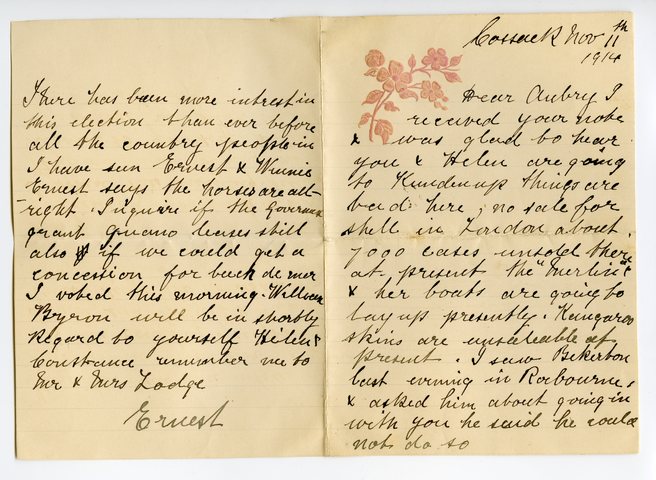 Cossack Nov 11th
1914
Dear Aubry I
received your note
& was glad to hear
you & Helen are going
to Kundenup things are
bad here, no sale for
shell in London about
7000 cases unsold there
at present the "Merlin"
& her boats are going to
lay up presently. Kangaroo
skins are unsaleable at
present. I saw Bikerton
last evning in Roebourne,
& asked him about going in
with you he said he could
not do so
There has been more intrest in
this election than ever before
all the country people in
I have seen Ernest & Winnie
Ernest says the horses are all
right. Inquire if the Governm
grant guano leases still
also if we could get a
concession for beach de mer
I voted this morning. William
Byron will be in shortly
Regard to yourself Helen &
Constance remember me to
Mr & Mrs Lodge
Ernest